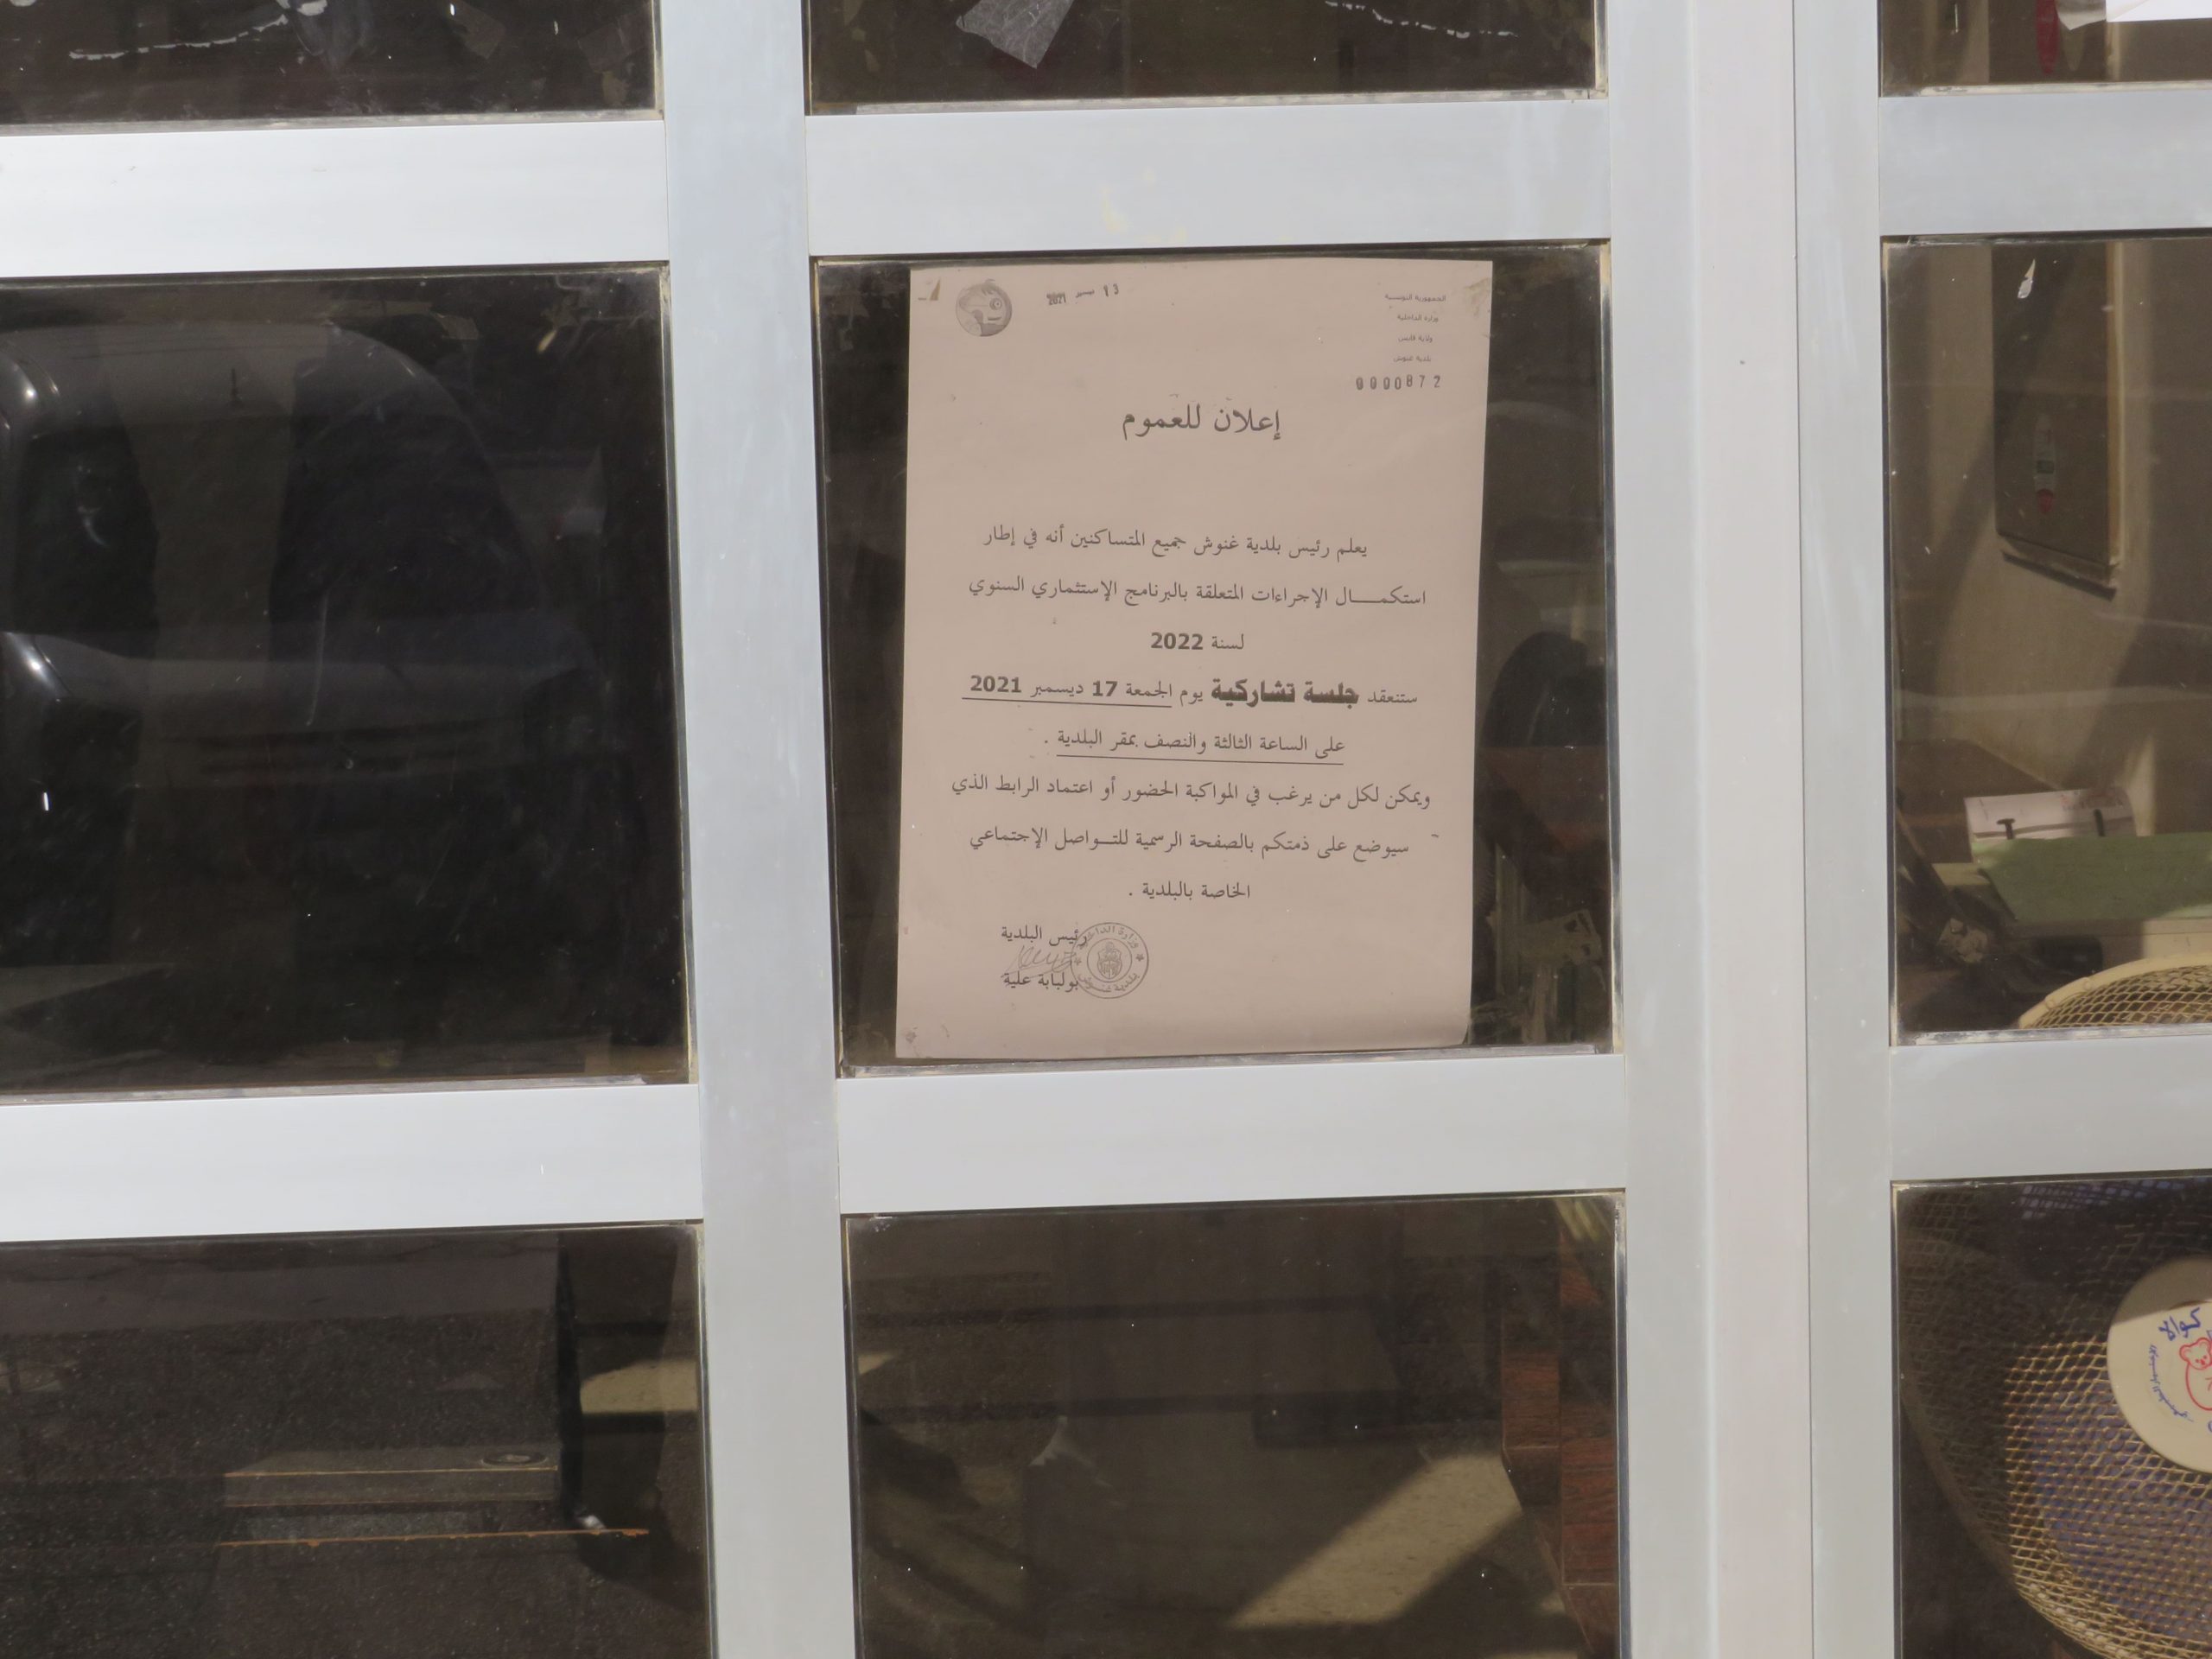 الجمهورية التونسية
وزارة الداخلية
ولاية قابس
بلدية غنوش
13 ديسمبر 2021
0000872
إعلان للعموم
يعلم رئيس بلدية غنوش جميع المتساكنين أنه في إطار
استكمـــال الإجراءات المتعلقة بالبرنامج الإستثماري السنوي
لسنة 2022
ستنعقد جلسة تشاركية يوم الجمعة 17 ديسمبر 2021
على الساعة الثالثة والنصف بمقر البلدية .
ويمكن لكل من يرغب في المواكبة الحضور أو اعتماد الرابط الذي
سيوضع على ذمتكم بالصفحة الرسمية للتــواصل الإجتماعي
الخاصة بالبلدية .
رئيس البلدية
بولبابة علية
وزارة الداخلية
بلدية غنوش
كوالا